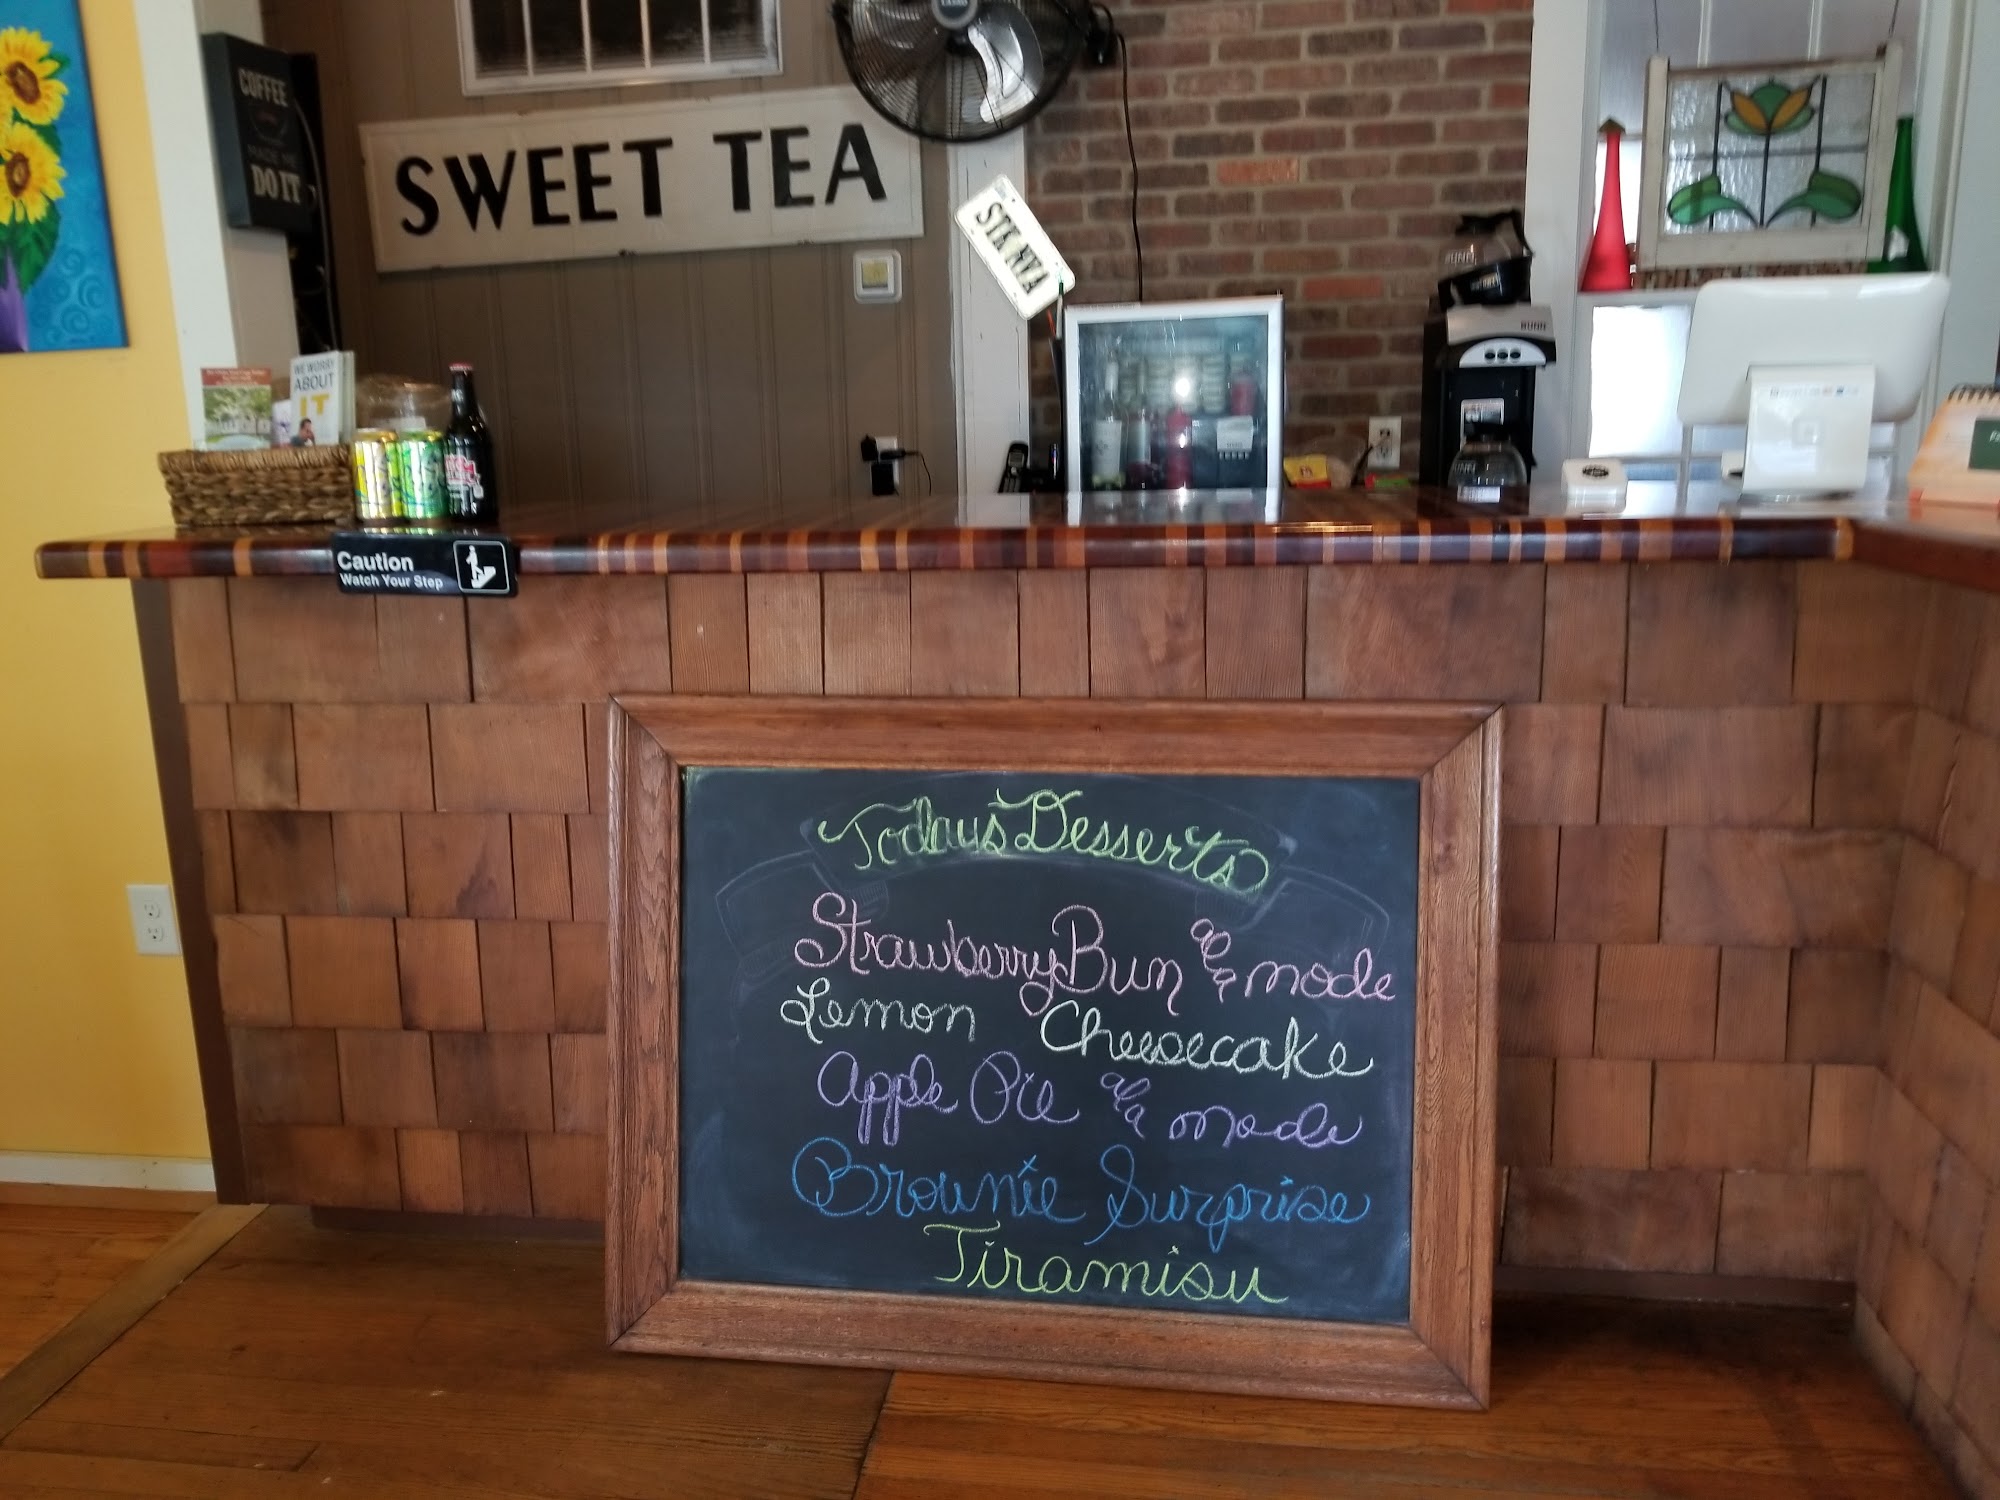 COFFEE
MADE ME
DO IT
SWEET TEA
STK NYA
WE WORRY
ABOUT
IT
BUNN
Caution
Watch Your Step
Today's Desserts
Strawberry Bun a la mode
Lemon Cheesecake
Apple Pie a la mode
Brownie Surprise
Tiramisu